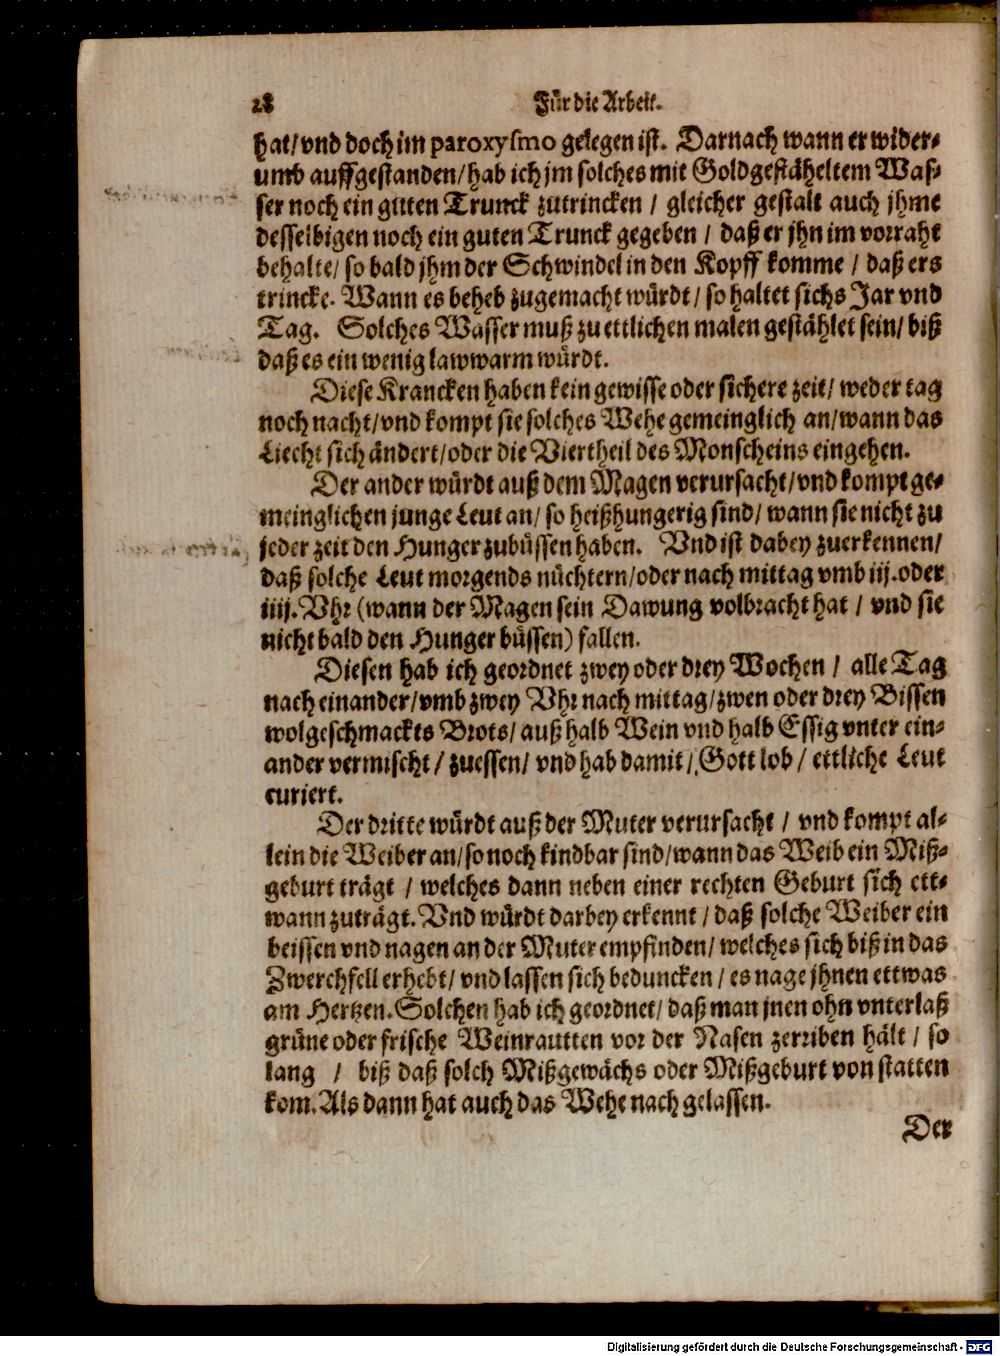 28 Für die Arbeit.
hat/vnd doch im paroxysmo gelegen ist. Darnach wann er wider-
umb auffgestanden/hab ich jm solches mit Goldgestäheltem Was-
ser noch ein guten Trunck zutrincken / gleicher gestalt auch jhme
desselbigen noch ein guten Trunck gegeben / daß er jhn im vorraht
behalte/ so bald jhm der Schwindel in den Kopff komme / daß ers
trincke. Wann es beheb zugemacht würdt/ so haltet sichs Jar vnd
Tag. Solches Wasser muß zu ettlichen malen gestählet sein/ biß
daß es ein wenig lawwarm würdt.
Diese Krancken haben kein gewisse oder sichere zeit/ weder tag
noch nacht/vnd kompt sie solches Wehe gemeinglich an/wann das
Liecht sich ändert/oder die Viertheil des Monscheins eingehen.
Der ander würdt auß dem Magen verursacht/vnd kompt ge-
meinglichen junge Leut an/ so heißhungerig sind/ wann sie nicht zu
jeder zeit den Hunger zubüssen haben. Vnd ist dabey zuerkennen/
daß solche Leut morgends nüchtern/oder nach mittag vmb iij. oder
iiij. Vhr (wann der Magen sein Dawung volbracht hat / vnd sie
nicht bald den Hunger büssen) fallen.
Diesen hab ich geordnet zwey oder drey Wochen / alle Tag
nach einander/vmb zwey Vhr nach mittag/zwen oder drey Bissen
wolgeschmackts Brots/ auß halb Wein vnd halb Essig vnter ein-
ander vermischt/ zuessen/ vnd hab damit/ Gott lob/ ettliche Leut
curiert.
Der dritte würdt auß der Muter verursacht / vnd kompt al-
lein die Weiber an/so noch kindbar sind/wann das Weib ein Miß-
geburt trägt / welches dann neben einer rechten Geburt sich ett-
wann zuträgt. Vnd würdt darbey erkennt / daß solche Weiber ein
beissen vnd nagen an der Muter empfinden/ welches sich biß in das
Zwerchfell erhebt/ vnd lassen sich beduncken / es nage jhnen ettwas
am Hertzen. Solchen hab ich geordnet/ daß man jnen ohn vnterlaß
grüne oder frische Weinrautten vor der Nasen zerriben hält / so
lang / biß daß solch Mißgewächs oder Mißgeburt von statten
kom. Als dann hat auch das Wehe nach gelassen.
Der
Digitalisierung gefördert durch die Deutsche Forschungsgemeinschaft - DFG